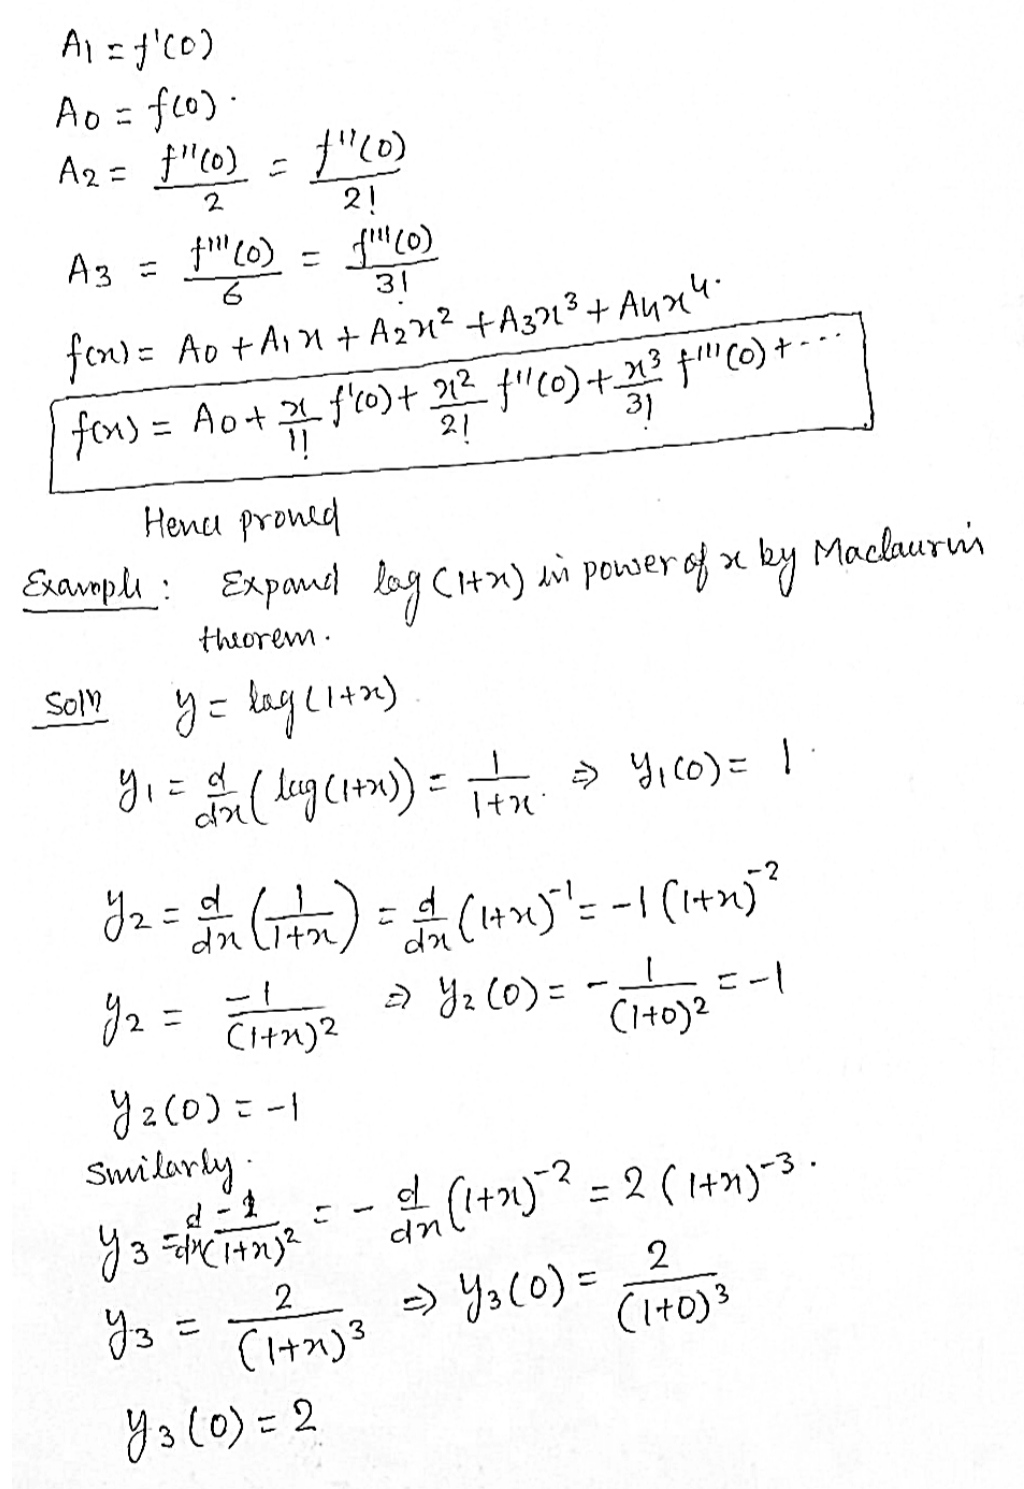 A1 = f'(0)
A0 = f(0).
A2 = f''(0)/2 = f''(0)/2!
A3 = f'''(0)/6 = f'''(0)/3!
f(x) = A0 + A1x + A2x² + A3x³ + A4x⁴.
f(x) = A0 + x/1! f'(0) + x²/2! f''(0) + x³/3! f'''(0) + ...
Hence proved
Example : Expand log (1+x) in power of x by Maclaurin's
theorem.
Solⁿ y = log (1+x)
y₁ = d/dx (log(1+x)) = 1/1+x. ⇒ y₁(0) = 1.
y₂ = d/dx (1/1+x) = d/dx (1+x)⁻¹ = -1 (1+x)⁻²
y₂ = -1/(1+x)² ⇒ y₂(0) = - 1/(1+0)² = -1
y₂(0) = -1
Similarly.
y₃ = d/dx -1/(1+x)² = - d/dx (1+x)⁻² = 2 (1+x)⁻³.
y₃ = 2/(1+x)³ ⇒ y₃(0) = 2/(1+0)³
y₃(0) = 2